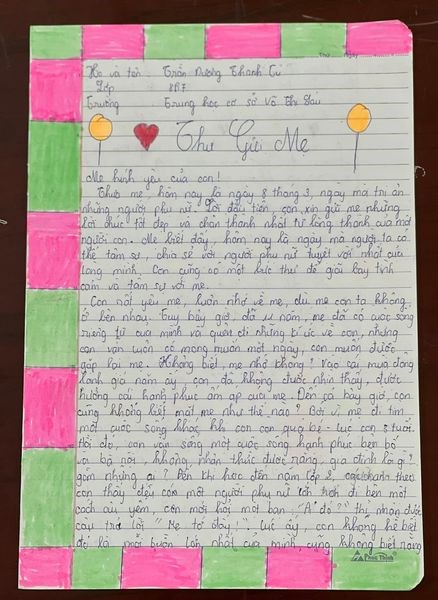 Thứ ... Ngày
Họ và tên Trần Dương Thanh Tú
Lớp 8A7
Trường Trung học cơ sở Võ Thị Sáu
Thư Gửi Mẹ
Mẹ kính yêu của con!
Thưa mẹ, hôm nay là ngày 8 tháng 3, ngày mà tri ân
những người phụ nữ. Lời đầu tiên, con xin gửi mẹ những
lời chúc tốt đẹp và chân thành nhất từ lòng thành của một
người con. Mẹ biết đấy, hôm nay là ngày mà người ta có
thể tâm sự, chia sẻ với người phụ nữ tuyệt vời nhất của
lòng mình. Con cũng có một bức thư để giãi bày tình
cảm và tâm sự với mẹ.
Con rất yêu mẹ, luôn nhớ về mẹ, dù mẹ con ta không
ở bên nhau. Tuy bây giờ, đã năm, mẹ đã có cuộc sống
riêng tư của mình và quên đi những kí ức về con, nhưng
con vẫn luôn có mong muốn một ngày, con muốn được
gặp lại mẹ. Không biết, mẹ nhớ không? Vào cái mùa đông
lạnh giá năm ấy, con đã không được nhìn thấy, được
hưởng cái hạnh phúc ấm áp của mẹ. Đến cả bây giờ, con
cũng không biết mặt mẹ như thế nào? Bởi vì mẹ đi tìm
một cuộc sống khác, khi con còn quá bé - lúc con 3 tuổi.
Hồi đó, con vẫn sống một cuộc sống hạnh phúc bên bố
và bà nội, không nhận thức được rằng, gia đình là gì?
gồm những ai? Đến khi học đến năm lớp 2, theo
con thấy đều còn một người phụ nữ tới đi bên một
cách âu yếm, con mới hỏi một bạn: "Ai đó?" thì nhận được
câu trả lời "Mẹ tớ đấy!". Lúc ấy, con không hề biết
đó là nỗi buồn lớn nhất của mình, cũng không biết rằng